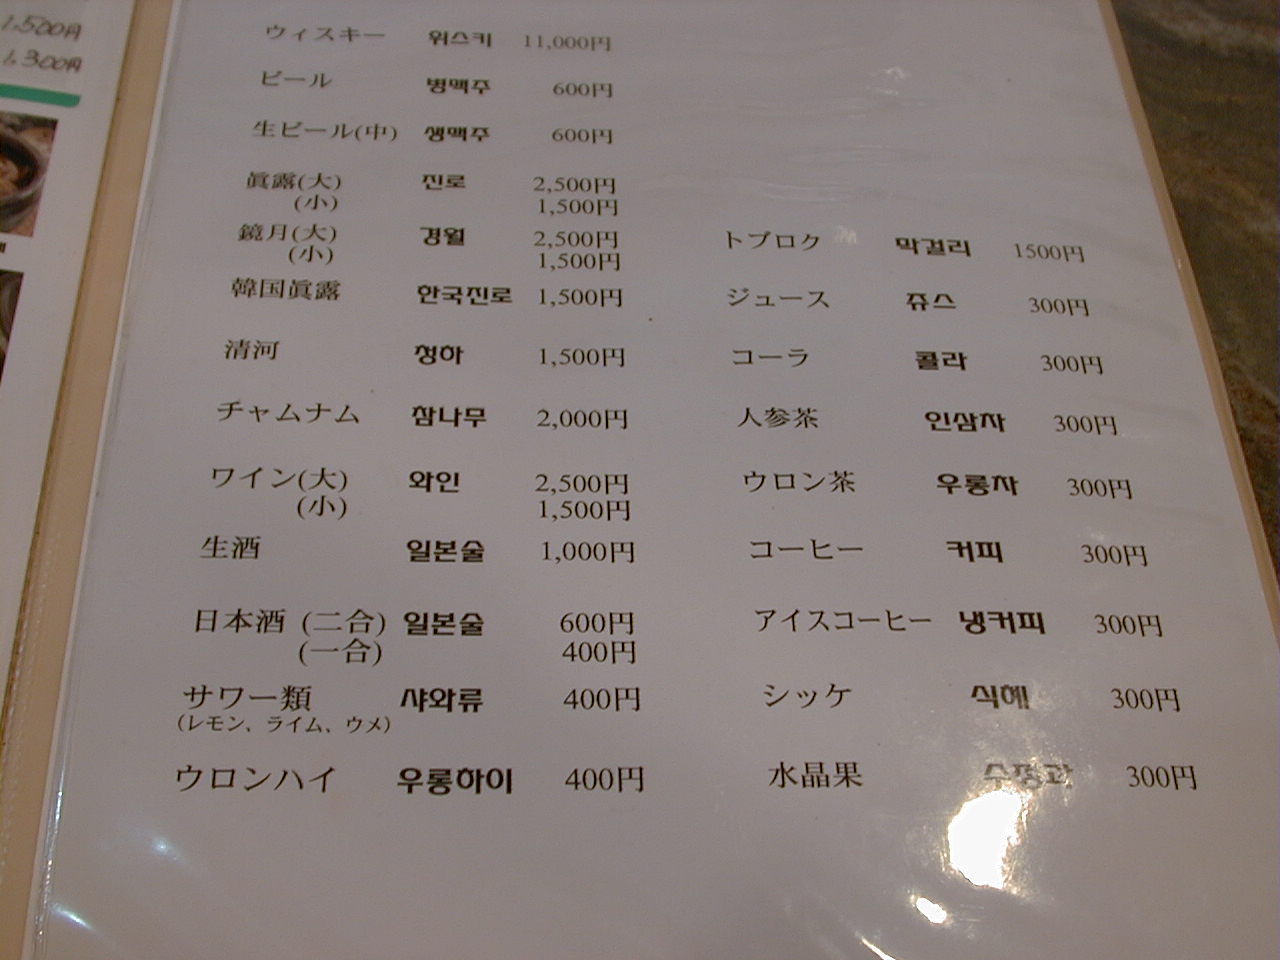 1,500円
1,300円
ウィスキー 위스키 11,000円
ビール 병맥주 600円
生ビール(中) 생맥주 600円
眞露(大) 진로 2,500円
(小) 1,500円
鏡月(大) 경월 2,500円
(小) 1,500円
韓国眞露 한국진로 1,500円
清河 청하 1,500円
チャムナム 참나무 2,000円
ワイン(大) 와인 2,500円
(小) 1,500円
生酒 일본술 1,000円
日本酒 (二合) 일본술 600円
(一合) 400円
サワー類 샤와류 400円
(レモン、ライム、ウメ)
ウロンハイ 우롱하이 400円
トブロク 막걸리 1500円
ジュース 쥬스 300円
コーラ 콜라 300円
人参茶 인삼차 300円
ウロン茶 우롱차 300円
コーヒー 커피 300円
アイスコーヒー 냉커피 300円
シッケ 식혜 300円
水晶果 수정과 300円